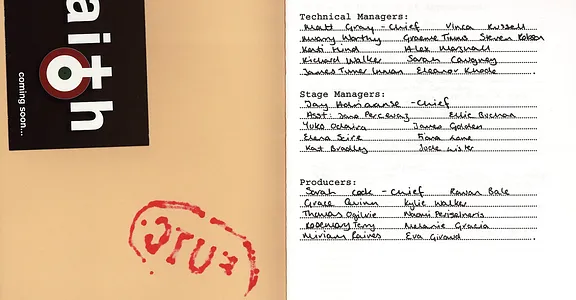 aith
coming soon...
STUFF
Technical Managers:
Matt Gray - Chief Vinca Russell
Kwany Worthy Graeme Timms Steven Robson
Kati Hind Alex Marshall
Richard Walker Sarah
James Turner Inman Eleanor Rhode
Stage Managers:
Jay Adriaanse - Chief
Asst: Jane Percevaz Ellie Buchan
Yuko James Golden
Elena Scire Fiona Lane
Kat Bradley Jude Lister
Producers:
Sarah Cook - Chief Rowan Bale
Grace Quinn Kylie Walker
Thomas Ogilvie Naomi Periselneris
Rosemary Terry Melanie Gracia
Miriam Raines Eva Giraud